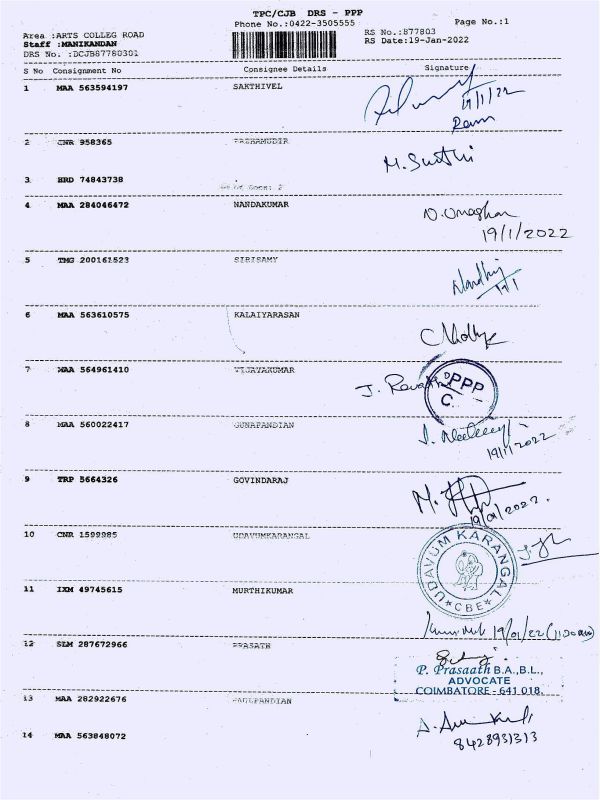 TPC/CJB DRS - PPP
Phone No.:0422-3505555 Page No.:1
Area :ARTS COLLEG ROAD RS No.:877803
Staff :MANIKANDAN RS Date:19-Jan-2022
DRS No. :DCJB87780301
S No Consignment No Consignee Details Signature
1 MAA 563594197 SAKTHIVEL
19/1/22
Ram
2 CNR 958365 PAZHAMUDIR
M. Suthi
3 HRD 74843738
No of Docs: 2
4 MAA 284046472 NANDAKUMAR
19/1/2022
5 TMG 200161523 SIRISAMY
19/1
6 MAA 563610575 KALAIYARASAN
7 MAA 564961410 VIJAYAKUMAR
J.
PPP
C.
8 MAA 560022417 GUNAPANDIAN
19/1/2022
9 TRP 5664326 GOVINDARAJ
M.
19/01/2022.
10 CNR 1599985 UDAVUMKARANGAL
UDAVUM KARANGAL
*CBE*
11 IXM 49745615 MURTHIKUMAR
19/01/22 (11:30 am)
12 SLM 287672966 PRASATH
P. Prasaath B.A.,B.L.,
ADVOCATE
COIMBATORE - 641 018.
13 MAA 282922676
8428931313
14 MAA 563848072